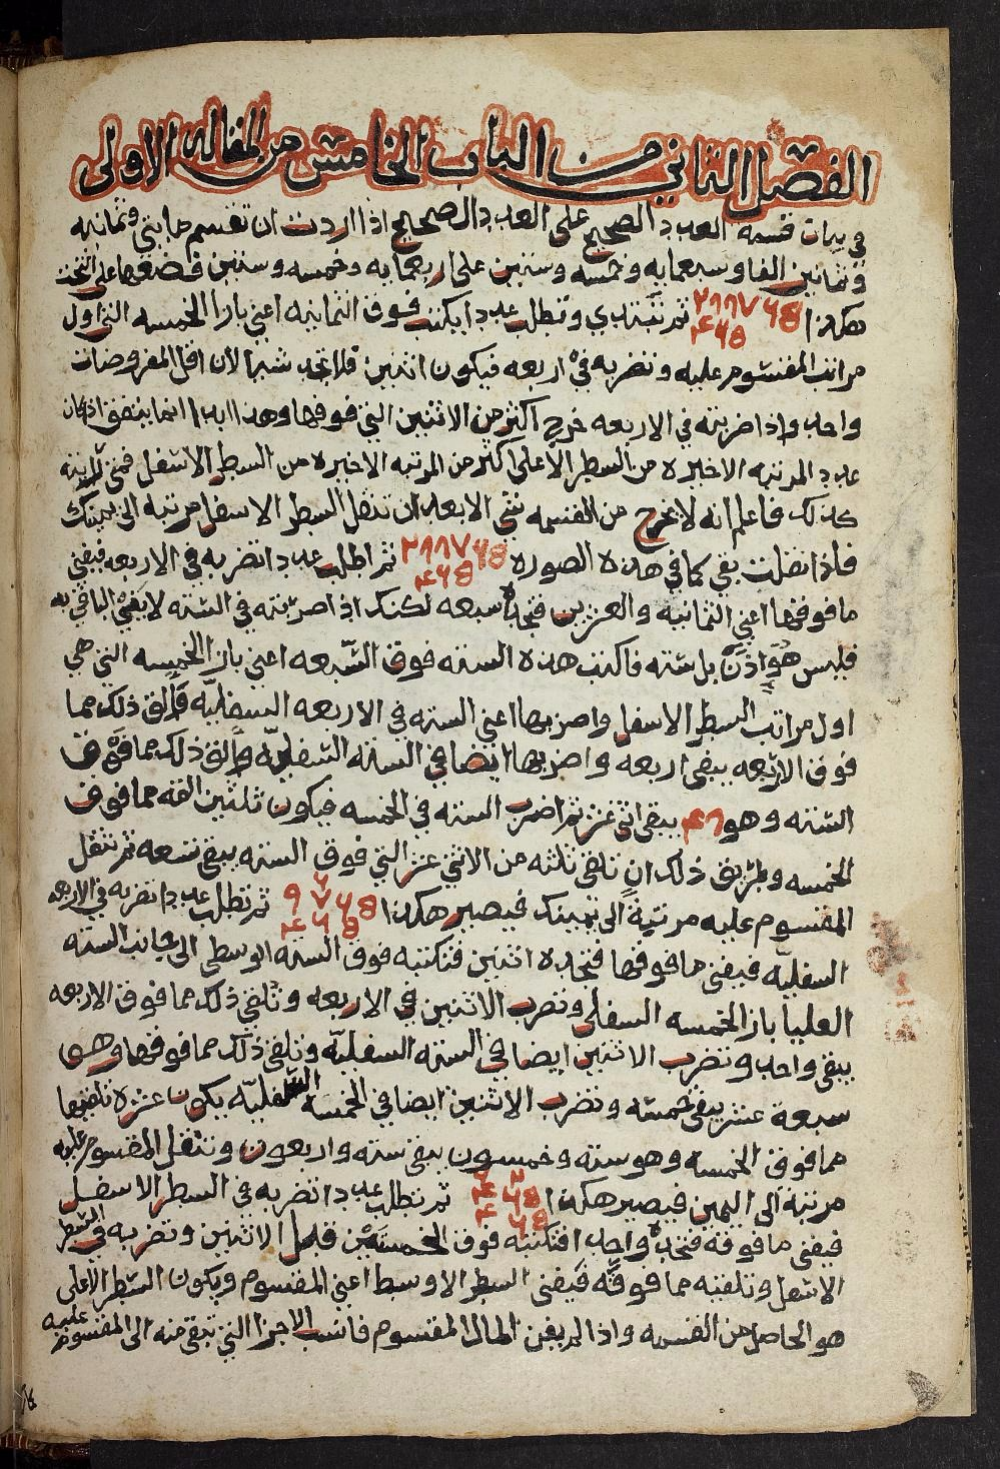 الفصل الثاني من الباب الخامس من المقاله الاولى
في بيان قسمه العدد الصحيح على العدد الصحيح اذا اردت ان تقسم مايتي وثمانيه
وثمانين الفا وسبعمايه وخمسه وستين على اربعمايه وخمسه وستين فضعها على التخت
هكذا ٢٨٨٧٦٥ ٤٦٥ ثم تبتدي وتطلب عددا يكتب فوق الثمانيه اعني بازا الخمسه التي اول
مراتب المقسوم عليه وتضربه في اربعه فيكون اثنين فلا تجد شيا لان اقل المفروضات
واحد واذا ضربته في الاربعه خرج اكثر من الاثنين التي فوقها وهذا ابدا انما يتفق اذا كان
عدد المرتبه الاخيره من السطر الاعلى اكثر من المرتبه الاخيره من السطر الاسفل فمتى
كذلك فاعلم انه لا يخرج من القسمه شي الا بعد ان تنقل السطر الاسفل مرتبه الى يمينك
فاذا نقلت بقي كما في هذه الصوره ٢٨٨٧٦٥ ٤٦٥ ثم اطلب عددا تضربه في الاربعه فيفني
ما فوقها اعني الثمانيه والعشرين فتجده سبعه لكنك اذا ضربته في السته لا يفي الباقي به
فليس هو اذن بل سته فاكتب هذه السته فوق السبعه اعني بازا الخمسه التي هي
اول مراتب السطر الاسفل واضربها اعني السته في الاربعه السفليه والق ذلك مما
فوق الاربعه يبقى اربعه واضربها ايضا في السته السفليه والق ذلك مما فوق
السته وهو ٤٨ يبقى اثنى عشر ثم اضرب السته في الخمسه فيكون ثلثين القه مما فوق
الخمسه وطريق ذلك ان تلقي ثلثه من الاثني عشر التي فوق السته يبقى تسعه ثم تنقل
المقسوم عليه مرتبة الى يمينك فيصير هكذا ٩٧٦٥ ٤٦٥ ثم تطلب عددا تضربه في الاربعه
السفليه فيفني ما فوقها فتجده اثنين فتكتبه فوق السته الوسطى الى جانب السته
العليا بازا الخمسه السفلى وتضرب الاثنين في الاربعه وتلقي ذلك مما فوق الاربعه
يبقى واحد وتضرب الاثنين ايضا في السته السفليه وتلقي ذلك مما فوقها وهو
سبعة عشر يبقى خمسه وتضرب الاثنين ايضا في الخمسه السفليه يكون عشره تلقيها
مما فوق الخمسه وهو سته وخمسون يبقى سته واربعون وتنقل المقسوم عليه
مرتبه الى اليمين فيصير هكذا ٤٦٥ ٤٦٥ ثم تطلب عددا تضربه في السطر الاسفل
فيفني ما فوقه فتجده واحدا فتكتبه فوق الخمستين قبل الاثنين وتضربه في السطر
الاسفل وتلقيه مما فوقه فيفنى السطر الاوسط اعني المقسوم ويكون السطر الاعلى
هو الحاصل من القسمه واذا لم يفن المال المقسوم فانسب الاجزا التي تبقى منه الى المقسوم عليه